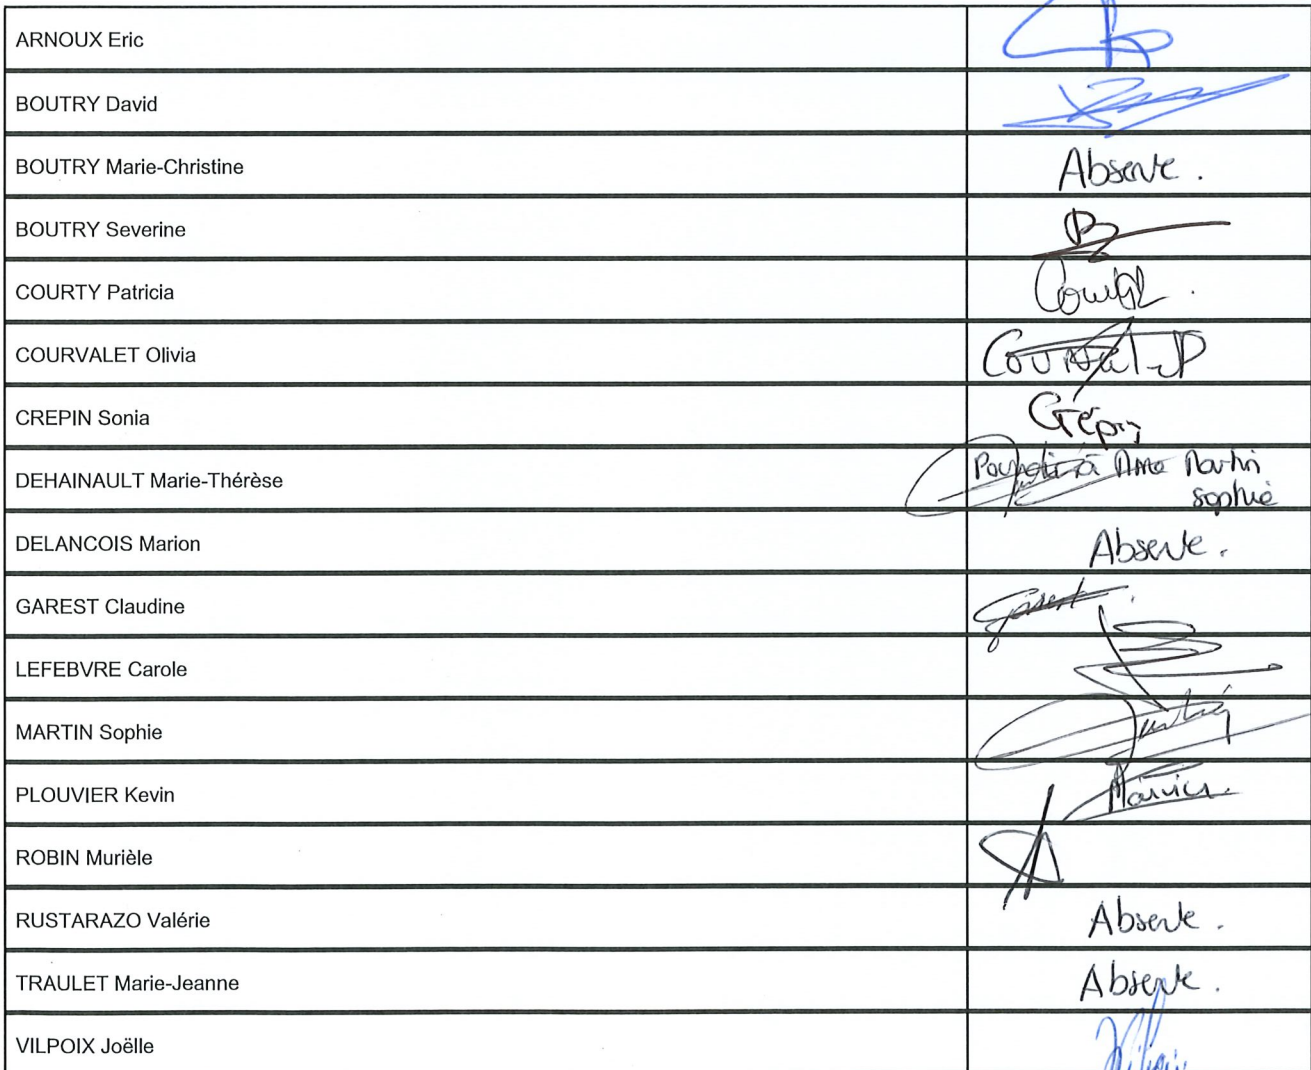 ARNOUX Eric
BOUTRY David
BOUTRY Marie-Christine Absente.
BOUTRY Severine
COURTY Patricia
COURVALET Olivia
CREPIN Sonia Crépin
DEHAINAULT Marie-Thérèse à Mme Martin
Sophie
DELANCOIS Marion Absente.
GAREST Claudine Garest
LEFEBVRE Carole
MARTIN Sophie
PLOUVIER Kevin
ROBIN Murièle
RUSTARAZO Valérie Absente.
TRAULET Marie-Jeanne Absente.
VILPOIX Joëlle